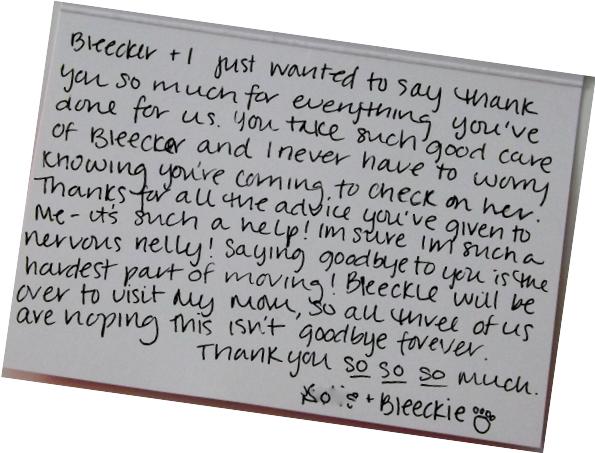 Bleecker + I just wanted to say thank
you so much for everything you've
done for us. You take such good care
of Bleecker and I never have to worry
knowing you're coming to check on her.
Thanks for all the advice you've given to
me - it's such a help! Im sure Im such a
nervous nelly! Saying goodbye to you is the
hardest part of moving! Bleeckie will be
over to visit my mom, so all three of us
are hoping this isn't goodbye forever.
Thank you so so so much.
+ Bleeckie